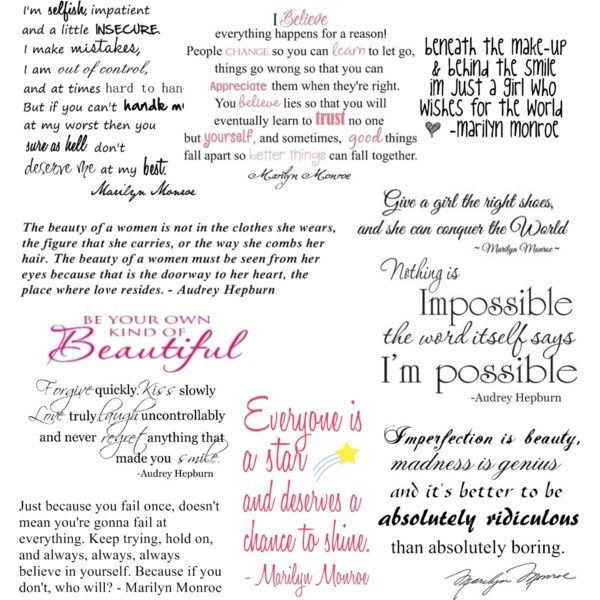 I'm selfish, impatient
and a little INSECURE.
I make mistakes,
I am out of control,
and at times hard to han
But if you can't handle m
at my worst then you
sure as hell don't
deserve me at my best.
Marilyn Monroe
I Believe
everything happens for a reason!
People CHANGE so you can learn to let go,
things go wrong so that you can
Appreciate them when they're right.
You believe lies so that you will
eventually learn to trust no one
but yourself, and sometimes, good things
fall apart so better things can fall together.
Marilyn Monroe
beneath the make-up
& behind the smile
im Just a girl who
wishes for the world
-marilyn monroe
Give a girl the right shoes,
and she can conquer the World
~ Marilyn Monroe ~
The beauty of a women is not in the clothes she wears,
the figure that she carries, or the way she combs her
hair. The beauty of a women must be seen from her
eyes because that is the doorway to her heart, the
place where love resides. - Audrey Hepburn
Nothing is
Impossible
the word itself says
I'm possible
-Audrey Hepburn
BE YOUR OWN
KIND OF
Beautiful
Forgive quickly. Kiss slowly
Love truly. laugh uncontrollably
and never regret anything that
made you smile.
-Audrey Hepburn
Everyone is
a star
and deserves a
chance to shine.
- Marilyn Monroe
Imperfection is beauty,
madness is genius
and it's better to be
absolutely ridiculous
than absolutely boring.
Marilyn Monroe
Just because you fail once, doesn't
mean you're gonna fail at
everything. Keep trying, hold on,
and always, always, always
believe in yourself. Because if you
don't, who will? - Marilyn Monroe